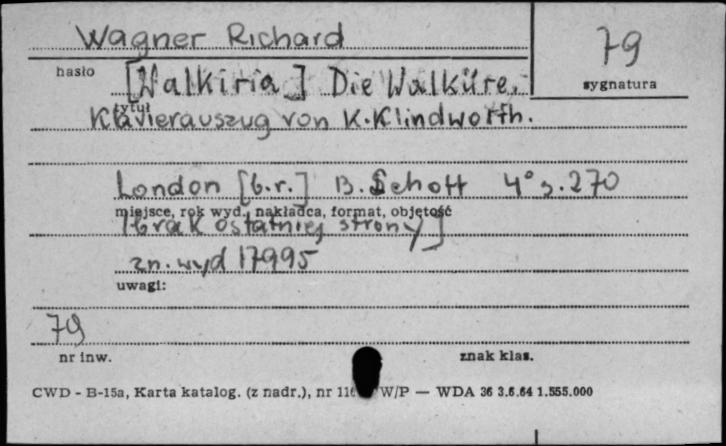 Wagner Richard
79
hasło
[Walkiria] Die Walküre.
sygnatura
tytuł
Klavierauszug von K. Klindworth.
London [b.r.] B. Schott 4° s. 270
miejsce, rok wyd., nakładca, format, objętość
[brak ostatniej strony]
zn. wyd 17995
uwagi:
79
nr inw.
znak klas.
CWD - B-15a, Karta katalog. (z nadr.), nr 116 W/P — WDA 36 3.6.64 1.555.000